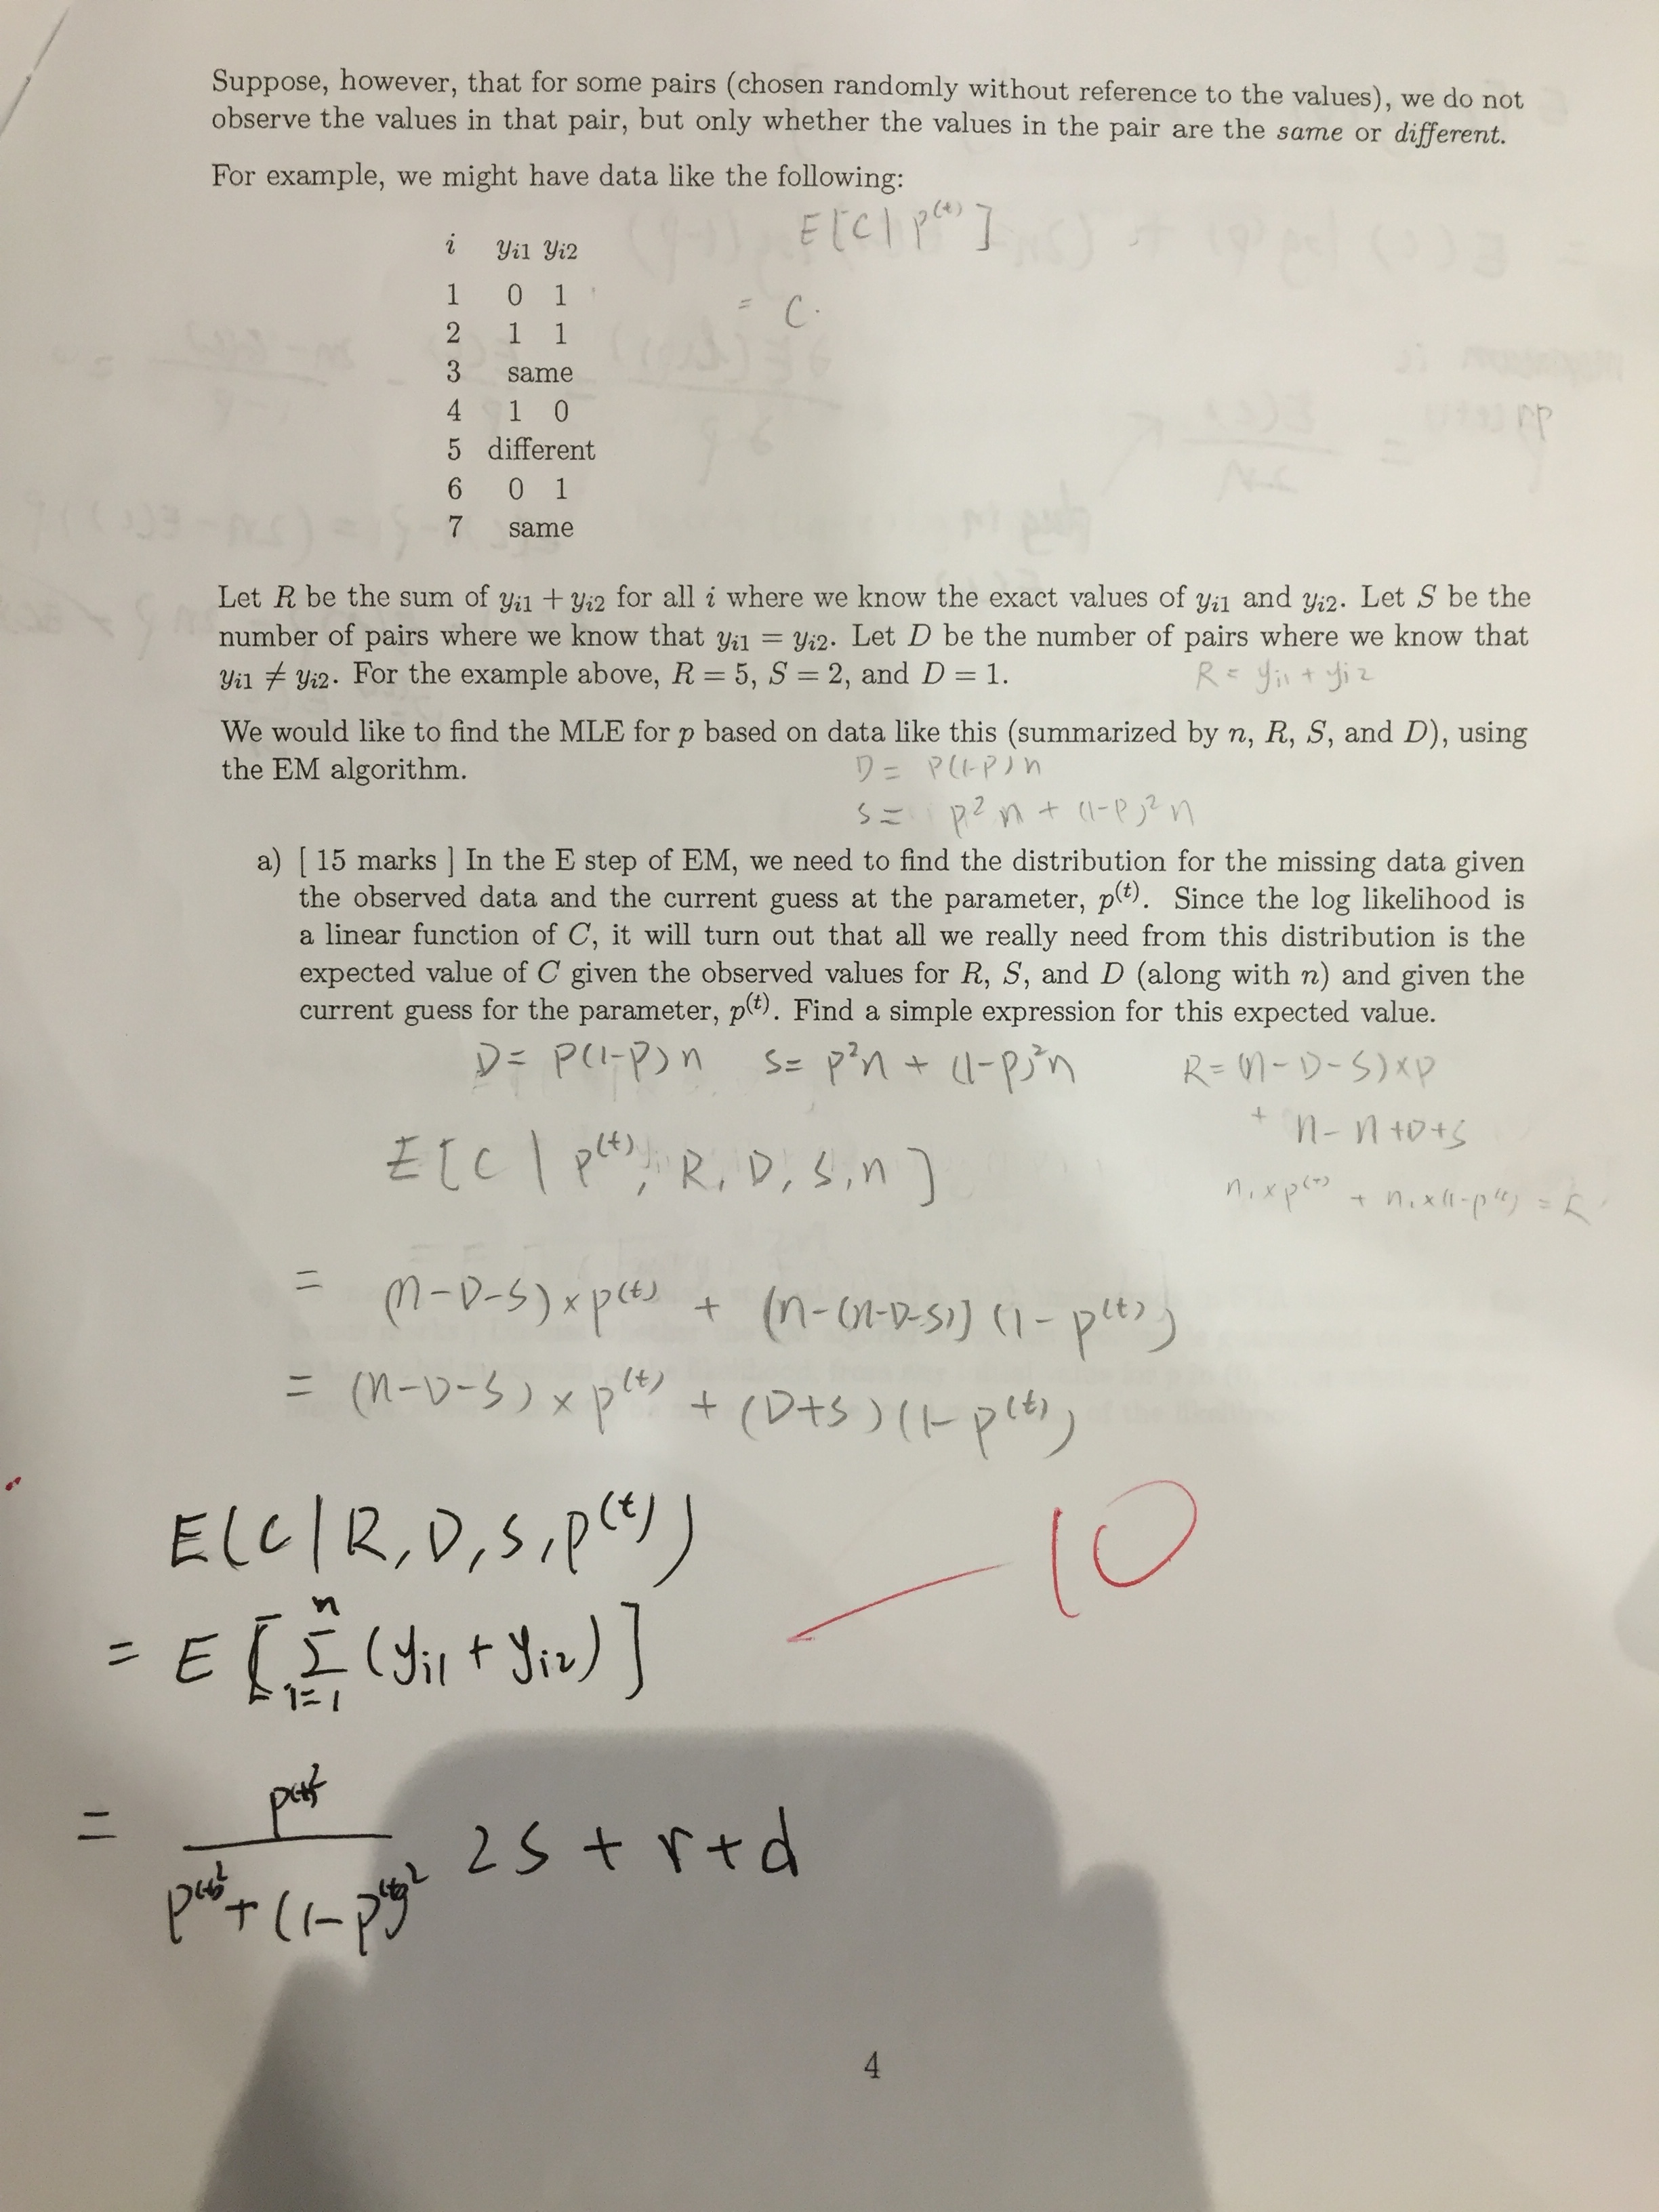 Suppose, however, that for some pairs (chosen randomly without reference to the values), we do not
observe the values in that pair, but only whether the values in the pair are the same or different.
For example, we might have data like the following:
E[C | p^(t)]
= C.
i y_i1 y_i2
1 0 1
2 1 1
3 same
4 1 0
5 different
6 0 1
7 same
Let R be the sum of y_i1 + y_i2 for all i where we know the exact values of y_i1 and y_i2. Let S be the
number of pairs where we know that y_i1 = y_i2. Let D be the number of pairs where we know that
y_i1 ≠ y_i2. For the example above, R = 5, S = 2, and D = 1.
R = y_i1 + y_i2
We would like to find the MLE for p based on data like this (summarized by n, R, S, and D), using
the EM algorithm.
D = P(1-P)n
S = p²n + (1-p)²n
a) [ 15 marks ] In the E step of EM, we need to find the distribution for the missing data given
the observed data and the current guess at the parameter, p^(t). Since the log likelihood is
a linear function of C, it will turn out that all we really need from this distribution is the
expected value of C given the observed values for R, S, and D (along with n) and given the
current guess for the parameter, p^(t). Find a simple expression for this expected value.
D = P(1-P)n S = p²n + (1-p)²n R = (n-D-S)×p
+ n-n+D+S
E[C | p^(t), R, D, S, n]
n₁×p^(t) + n₁×(1-p^(t)) =
= (n-D-S)×p^(t) + (n-(n-D-S))(1-p^(t))
= (n-D-S)×p^(t) + (D+S)(1-p^(t))
E(C | R, D, S, p^(t))
-10
= E[Σ_{i=1}^{n} (y_i1 + y_i2)]
= p^(t)² / (p^(t)² + (1-p^(t))²) 2S + r + d
4